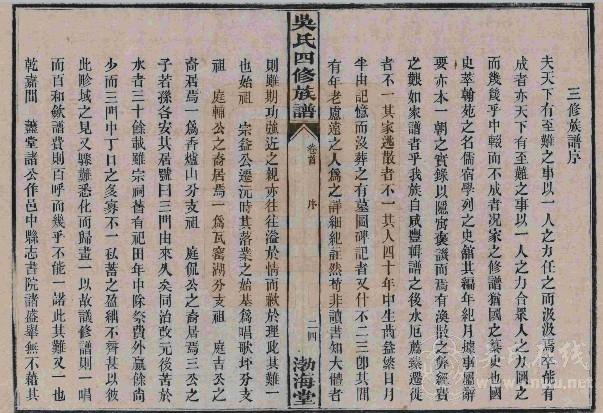 三修族譜序
夫天下有至難之事以一人之力任之而汲汲焉卒能有
成者亦天下有至難之事以一人之力合衆人之力圖之
而幾幾乎中輟而不成者况家之修譜猶國之纂史也國
史萃翰苑之名儒宿學列之史舘其編年紀月據事屬辭
要亦本一朝之實錄以隱寓褒議而焉有渙散之
之艱如來譜者乎我族自咸豐輯譜之後水厄薦臻遷徙
者不一其家逃散者不一其人四十年中生齒益繁日月
半由記憶而没葬之有墓圖碑記者又什不二三卽其間
有年老慮遠之人爲之詳細紀註然苟非讀書知大體者
吳氏四修族譜
卷首
序
二四
渤海堂
則雖期功強近之親亦往往溢於情而歉於理此其難一
也始祖 宗益公遷沅時其落業之始基爲唱歌圫分支
祖 庭輔公之裔居焉一爲瓦窰湖分支祖 庭吉公之
裔居焉一爲香爐山分支祖 庭侃公之裔居焉三公之
子若孫各安其居號曰三門由來久矣同治改元後苦於
水者三十餘載雖宗祠舊有祀田年中除祭費外贏餘尚
少而三門中丁口之多寡不一私蓄之盈絀不齊甚以彼
此畛域之見又驟難悉化而歸畫一以故議修譜則一唱
而百和歛譜費則百呼而幾乎不能一諾此其難又一也
乾嘉間 藎堂諸公作邑中縣志書院諸盛舉無不藉其